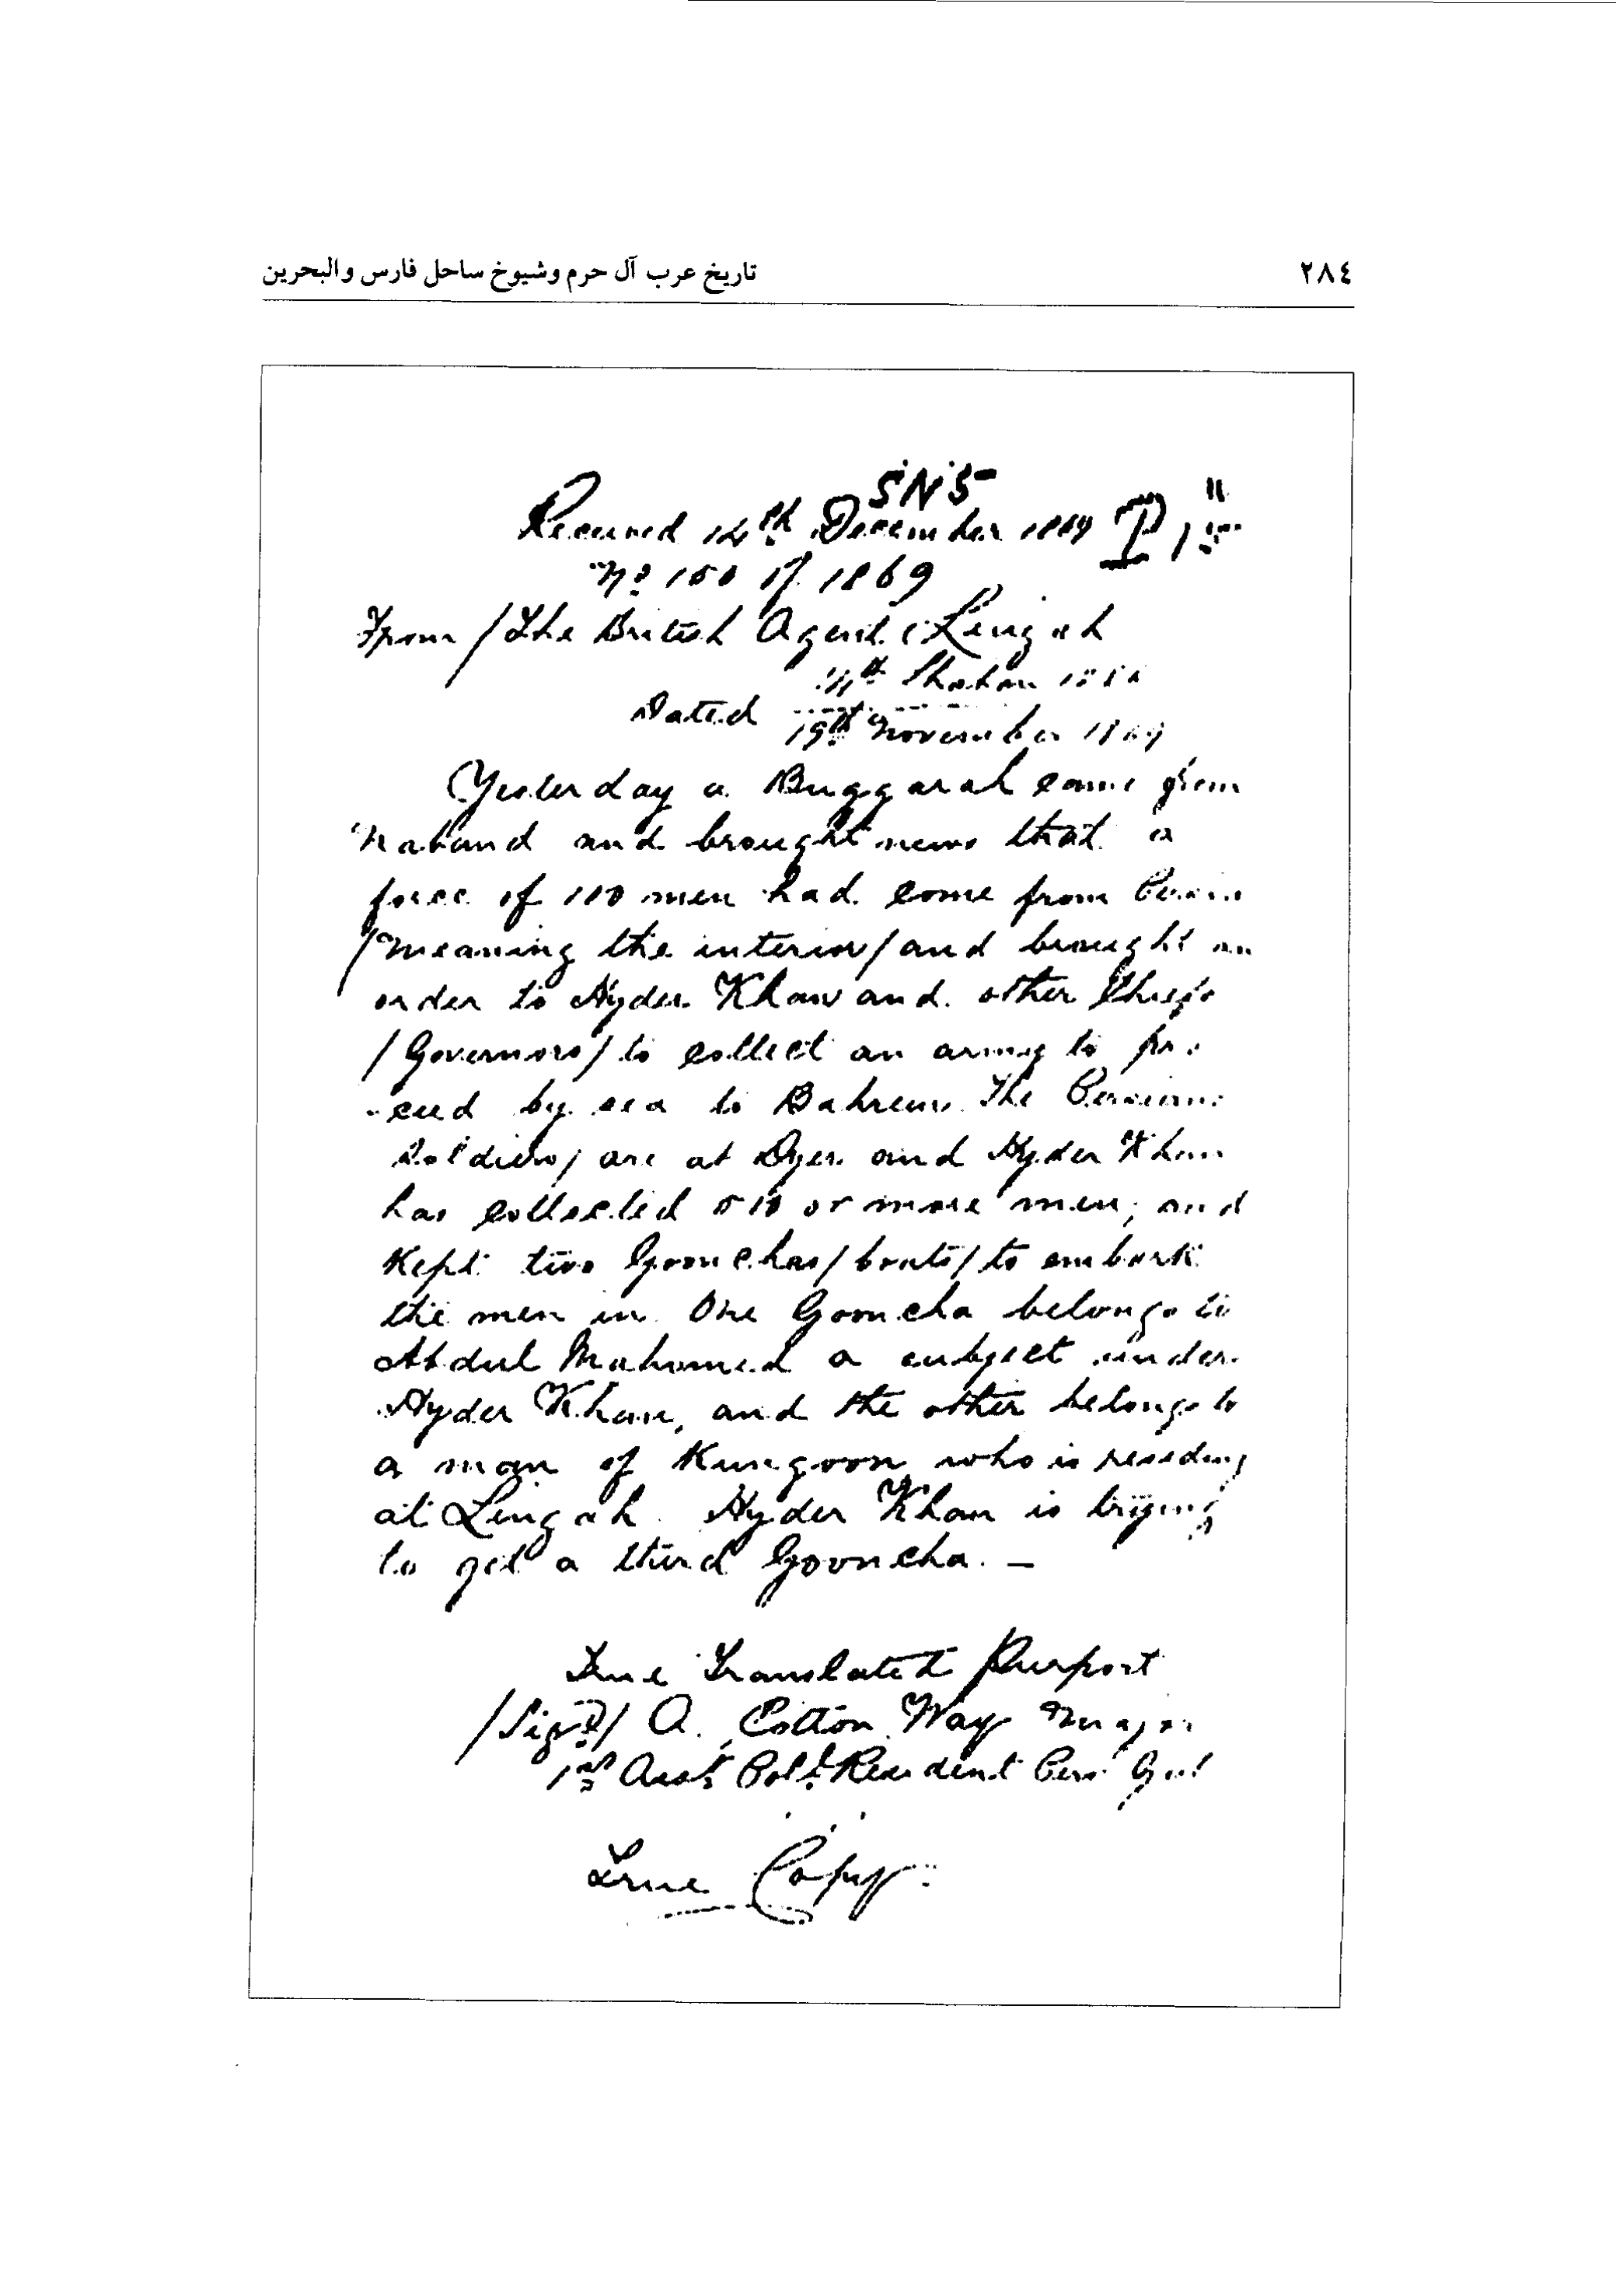 تاريخ عرب آل حرم وشيوخ ساحل فارس والبحرين
٢٨٤
Received 14th December 1869
No 150 of 1869
From / The British Agent Lingah
Shaban
Dated
19th November 1869
Yesterday a Buggarah came from
Naband and brought news that a
force of 100 men had come from Persia
/ Meaning the interior / and brought an
order to Hyder Khan and other Chiefs
/ Governors / to collect an army to pro
-ceed by sea to Bahrein. The Persians
Soldiers / are at Dyer and Hyder Khan
has collected 500 or more men, and
Kept two Gooncha's / boats / to embark
the men in One Gooncha belongs to
Abdul Mahomed a subject under
Hyder Khan, and the other belongs to
a man of Kungoon who is residing
at Lingah. Hyder Khan is trying
to get a third Gooncha. —
True Translated Purport
/ Sigd / A. Cotton Way Major
1st Asst Poltl Resident Pers: Gulf
True Copy